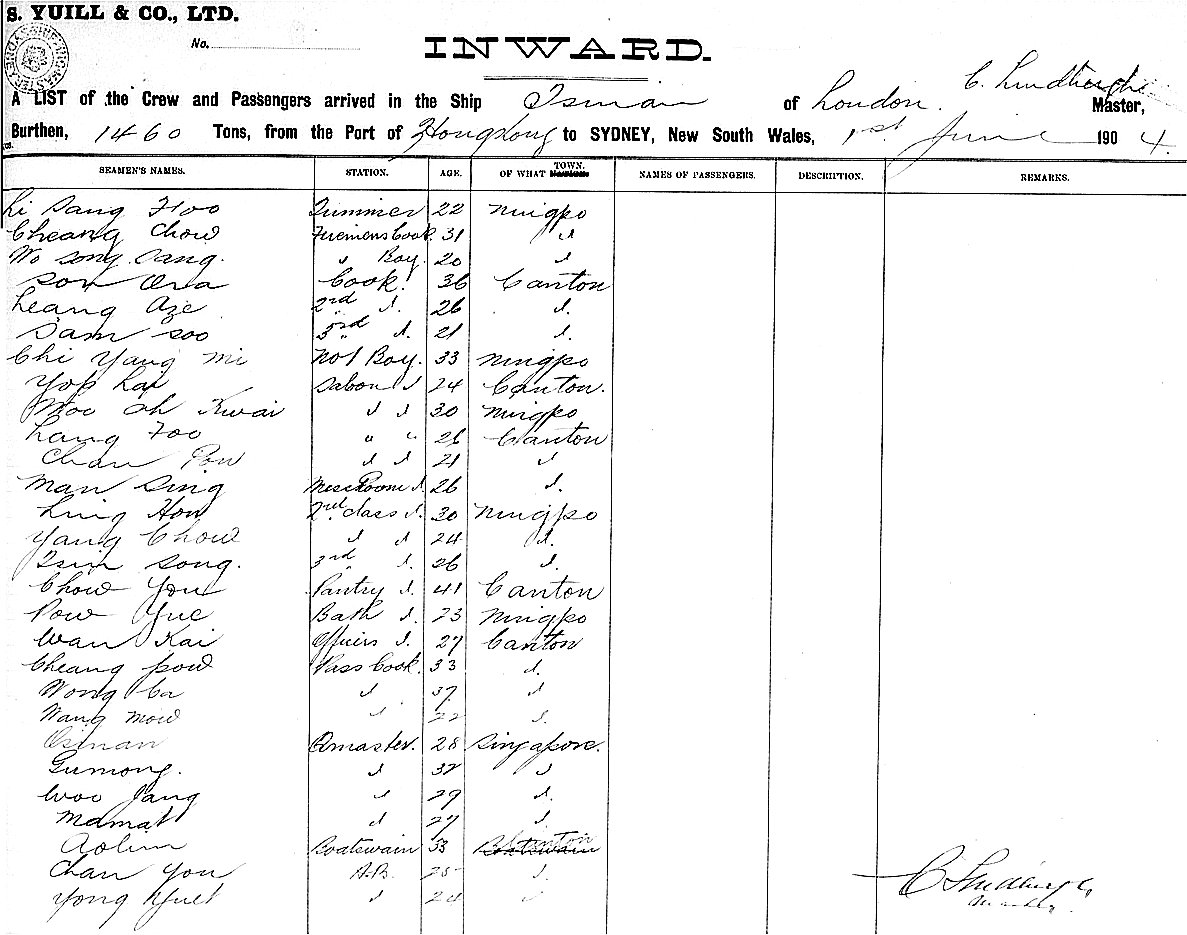 S. YUILL & CO., LTD.
No.
INWARD.
C. Lindbergh
A LIST of the Crew and Passengers arrived in the Ship Tsinan of London. Master,
Burthen, 1460 Tons, from the Port of Hongkong to SYDNEY, New South Wales, 1st June 1904.
SEAMEN'S NAMES. STATION. AGE. OF WHAT TOWN. NAMES OF PASSENGERS. DESCRIPTION. REMARKS.
Li Sang Foo 22 Ningpo
Cheang Chow Firemens Cook. 31 "
Wo Song Sang. " Boy. 20 "
Son Cook. 36 Canton
Leang Aze 2nd " 26 "
Sam Soo 3rd " 21 "
Chi Yang Mi No 1 Boy. 33 Ningpo
Yop Lai Saloon " 24 Canton.
Moo Ah Kwai " " 30 Ningpo
Lang Foo " " 26 Canton
Chan Pow " " 21 "
Man Sing Mess Room " 26 "
Ling Hon 2nd class " 30 Ningpo
Yang Chow " " 24 "
Tsin Song. 3rd " 26 "
Chow You Pantry " 41 Canton
Pow Yue Bath " 23 Ningpo
Wan Kai Officers " 27 Canton
Cheang Pow Pass Cook. 33 "
Wong Ca " 37 "
Wang Mow " 22 "
Osman Qmaster. 28 Singapore.
Gumong. " 32 "
Woo Jang " 29 "
Mamat " 27 "
Aolim Boatswain 33 Canton
Chan You A.B. 25 "
Yong Yuet " 24 "
C Lindbergh
Master